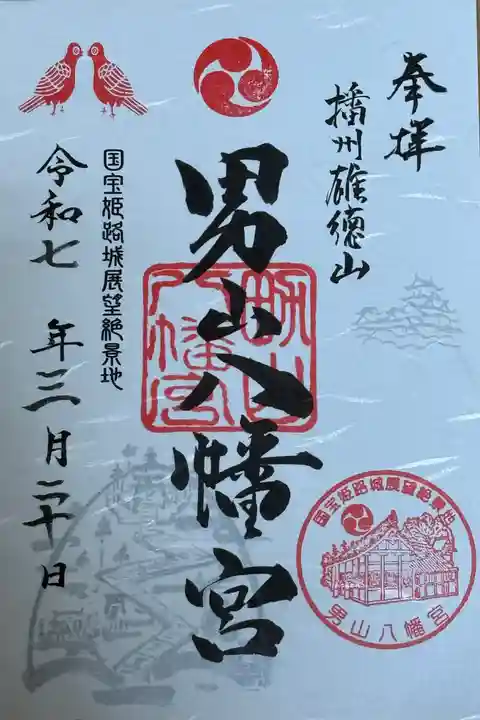 奉拝
播州雄徳山
男山八幡宮
男山八幡宮
国宝姫路城展望絶景地
令和七年三月二十日
国宝姫路城展望絶景地
男山八幡宮